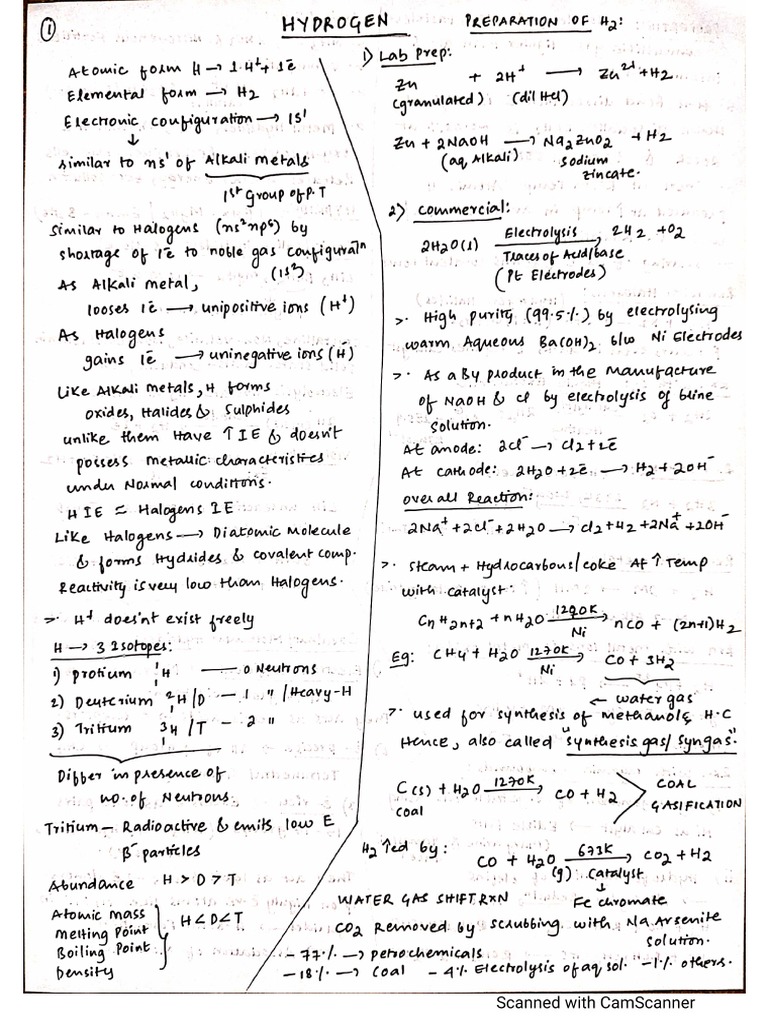 ①
HYDROGEN
Atomic form H → 1 H⁺ + 1ē
Elemental form → H2
Electronic configuration → 1S¹
↓
similar to ns¹ of Alkali metals
1st Group of P.T
Similar to Halogens (ns²np⁵) by
shortage of 1ē to noble gas configuratⁿ
(1s²)
As Alkali metal,
looses 1ē → unipositive ions (H⁺)
As Halogens
gains 1ē → uninegative ions (H⁻)
Like Alkali metals, H forms
oxides, Halides & Sulphides
unlike them Have ↑IE & doesn't
possess metallic characteristics
under Normal conditions.
H IE ≈ Halogens IE
Like Halogens → Diatomic Molecule
& forms Hydrides & covalent comp.
Reactivity is very low than Halogens.
> H⁺ does'nt exist freely
H → 3 Isotopes:
1) protium ¹₁H — 0 Neutrons
2) Deuterium ²₁H/D — 1 " /Heavy-H
3) Tritium ³₁H/T — 2 "
Differ in presence of
no. of Neutrons
Tritium — Radioactive & emits low E
β⁻ particles
Abundance H > D > T
Atomic mass
Melting Point
Boiling Point
Density
H<D<T
PREPARATION OF H2:
1) Lab Prep:
Zn + 2H⁺ → Zn²⁺ + H2
(granulated) (dil Hcl)
Zn + 2NaOH → Na2ZnO2 + H2
(aq Alkali) sodium
zincate.
2) commercial:
2H2O(l) Electrolysis → 2H2 + O2
Traces of Acid/base
(Pt Electrodes)
>. High purity (99.5%) by electrolysing
warm Aqueous Ba(OH)2 b/w Ni Electrodes
>. As a By product in the manufacture
of NaOH & cl by electrolysis of brine
solution.
At anode: 2cl⁻ → cl2+2ē
At cathode: 2H2O+2ē → H2+2OH⁻
overall Reaction:
2Na⁺+2cl⁻+2H2O → cl2+H2+2Na⁺+2OH⁻
>. steam + Hydrocarbons/coke At ↑Temp
with catalyst.
CnH2n+2 + nH2O 1270K → nCO + (2n+1)H2
Ni
Eg: CH4 + H2O 1270K → CO + 3H2
Ni
← water gas
> used for synthesis of methanol & H.C
Hence, also called "synthesis gas/syngas".
C(s) + H2O 1270K → CO + H2
coal
COAL
GASIFICATION
H2 ↑ed by:
CO + H2O 673K → CO2 + H2
(g) catalyst
↓
Fe chromate
WATER GAS SHIFT RXN
CO2 Removed by scrubbing with Na Arsenite
solution.
- 77% → petrochemicals
- 18% → Coal - 4% Electrolysis of aq sol. - 1% others.
Scanned with CamScanner